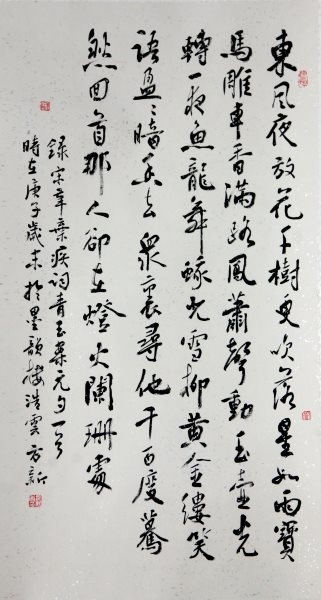 東風夜放花千樹更吹落星如雨寶
馬雕車香滿路鳳蕭聲動玉壺光
轉一夜魚龍舞蛾兒雪柳黃金縷笑
語盈〻暗香去衆裏尋他千百度驀
然回首那人卻在燈火闌珊處
錄宋辛棄疾詞青玉案元夕一首
時在庚子歲末於墨韻樓浩雲方新